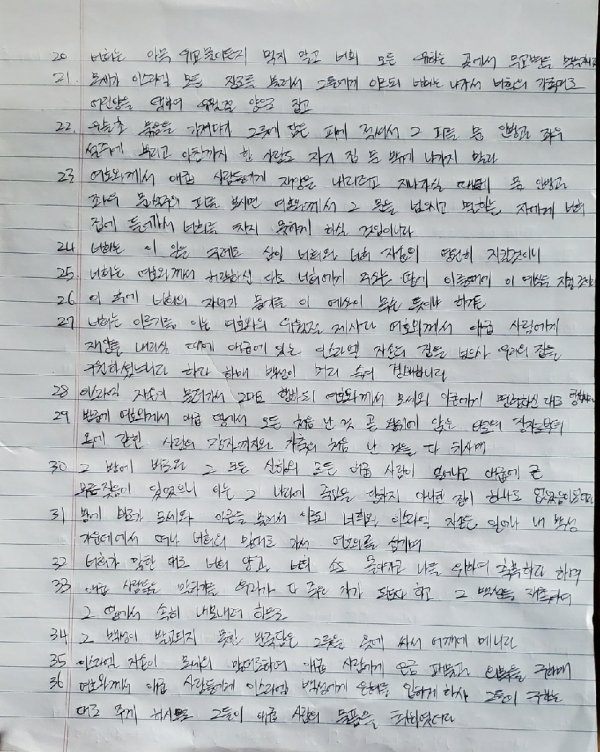 20 너희는 아무 유교물이든지 먹지 말고 너희 모든 유하는 곳에서 무교병을 먹을지니라
21. 모세가 이스라엘 모든 장로를 불러서 그들에게 이르되 너희는 나가서 너희의 가족대로
어린양을 택하여 유월절 양으로 잡고
22. 우슬초 묶음을 가져다가 그릇에 담은 피에 적셔서 그 피를 문 인방과 좌우
설주에 뿌리고 아침까지 한 사람도 자기 집 문 밖에 나가지 말라
23 여호와께서 애굽 사람들에게 재앙을 내리려고 지나가실 때에 문 인방과
좌우 문설주의 피를 보시면 여호와께서 그 문을 넘으시고 멸하는 자에게 너희
집에 들어가서 너희를 치지 못하게 하실 것임이니라
24 너희는 이 일을 규례로 삼아 너희와 너희 자손이 영원히 지킬것이니
25 너희는 여호와께서 허락하신 대로 너희에게 주시는 땅에 이를때에 이 예식을 지킬
26 이 후에 너희의 자녀가 묻기를 이 예식이 무슨 뜻이냐 하거든
27 너희는 이르기를 이는 여호와의 유월절 제사라 여호와께서 애굽 사람에게
재앙을 내리실 때에 애굽에 있는 이스라엘 자손의 집을 넘으사 우리의 집을
구원하셨느니라 하라 하매 백성이 머리 숙여 경배하니라
28 이스라엘 자손이 물러가서 그대로 행하되 여호와께서 모세와 아론에게 명령하신 대로
29 밤중에 여호와께서 애굽 땅에서 모든 처음 난 것 곧 왕위에 앉은 바로의 장자로부터
옥에 갇힌 사람의 장자까지와 가축의 처음 난 것을 다 치시매
30 그 밤에 바로와 그 모든 신하와 모든 애굽 사람이 일어나고 애굽에 큰
부르짖음이 있었으니 이는 그 나라에 죽임을 당하지 아니한 집이 하나도 없었음이었더라
31 밤에 바로가 모세와 아론을 불러서 이르되 너희와 이스라엘 자손은 일어나 내 백성
가운데에서 떠나 너희의 말대로 가서 여호와를 섬기며
32 너희가 말한 대로 너희 양과 너희 소도 몰아가고 나를 위하여 축복하라 하며
33 애굽 사람들은 말하기를 우리가 다 죽은 자가 되도다 하고 그 백성을 재촉하여
그 땅에서 속히 내보내려 하므로
34 그 백성이 발교되지 못한 반죽담은 그릇을 옷에 싸서 어깨에 메니라
35 이스라엘 자손이 모세의 말대로하여 애굽 사람에게 은금 패물과 의복을 구하매
36 여호와께서 애굽 사람들에게 이스라엘 백성에게 은혜를 입히게 하사 그들이 구하는
대로 주게 하시므로 그들이 애굽 사람의 물품을 취하였더라